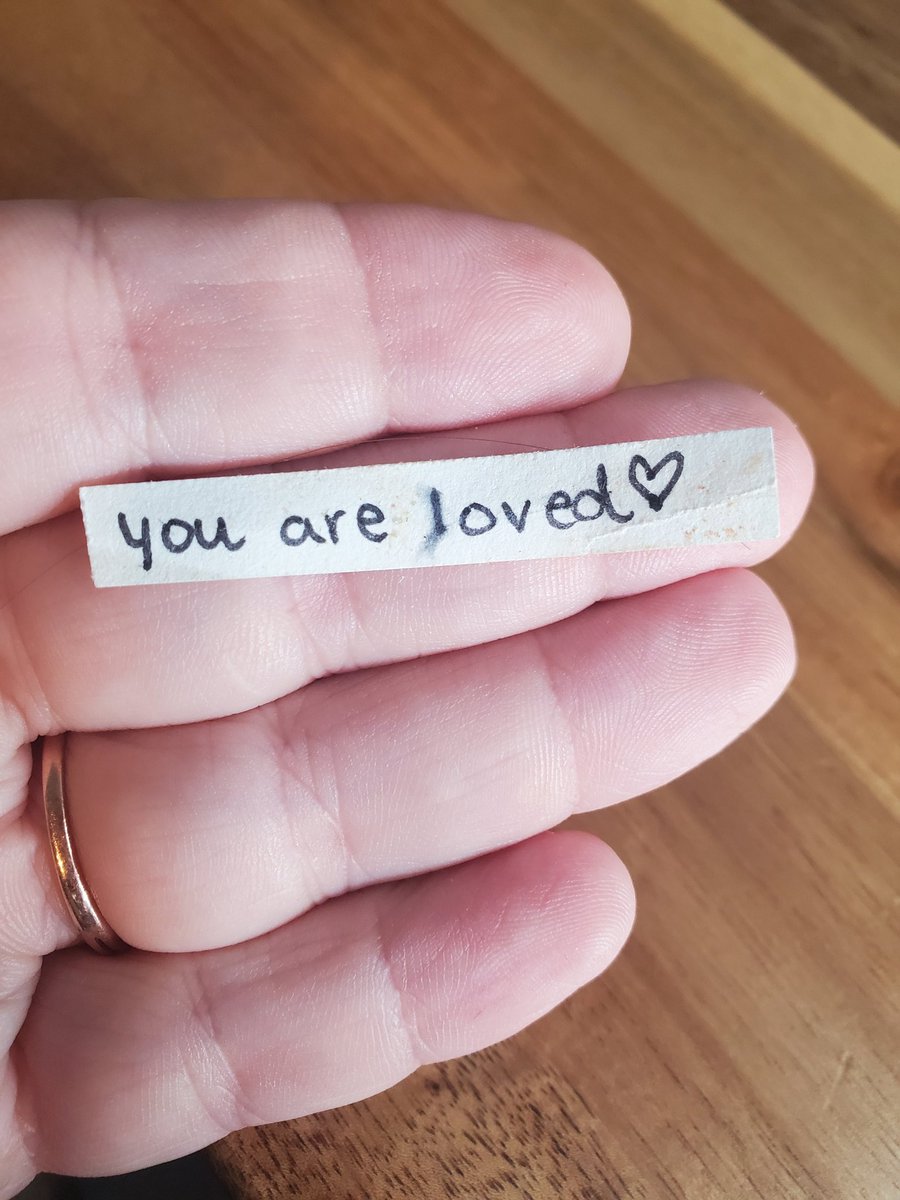 you are loved♡